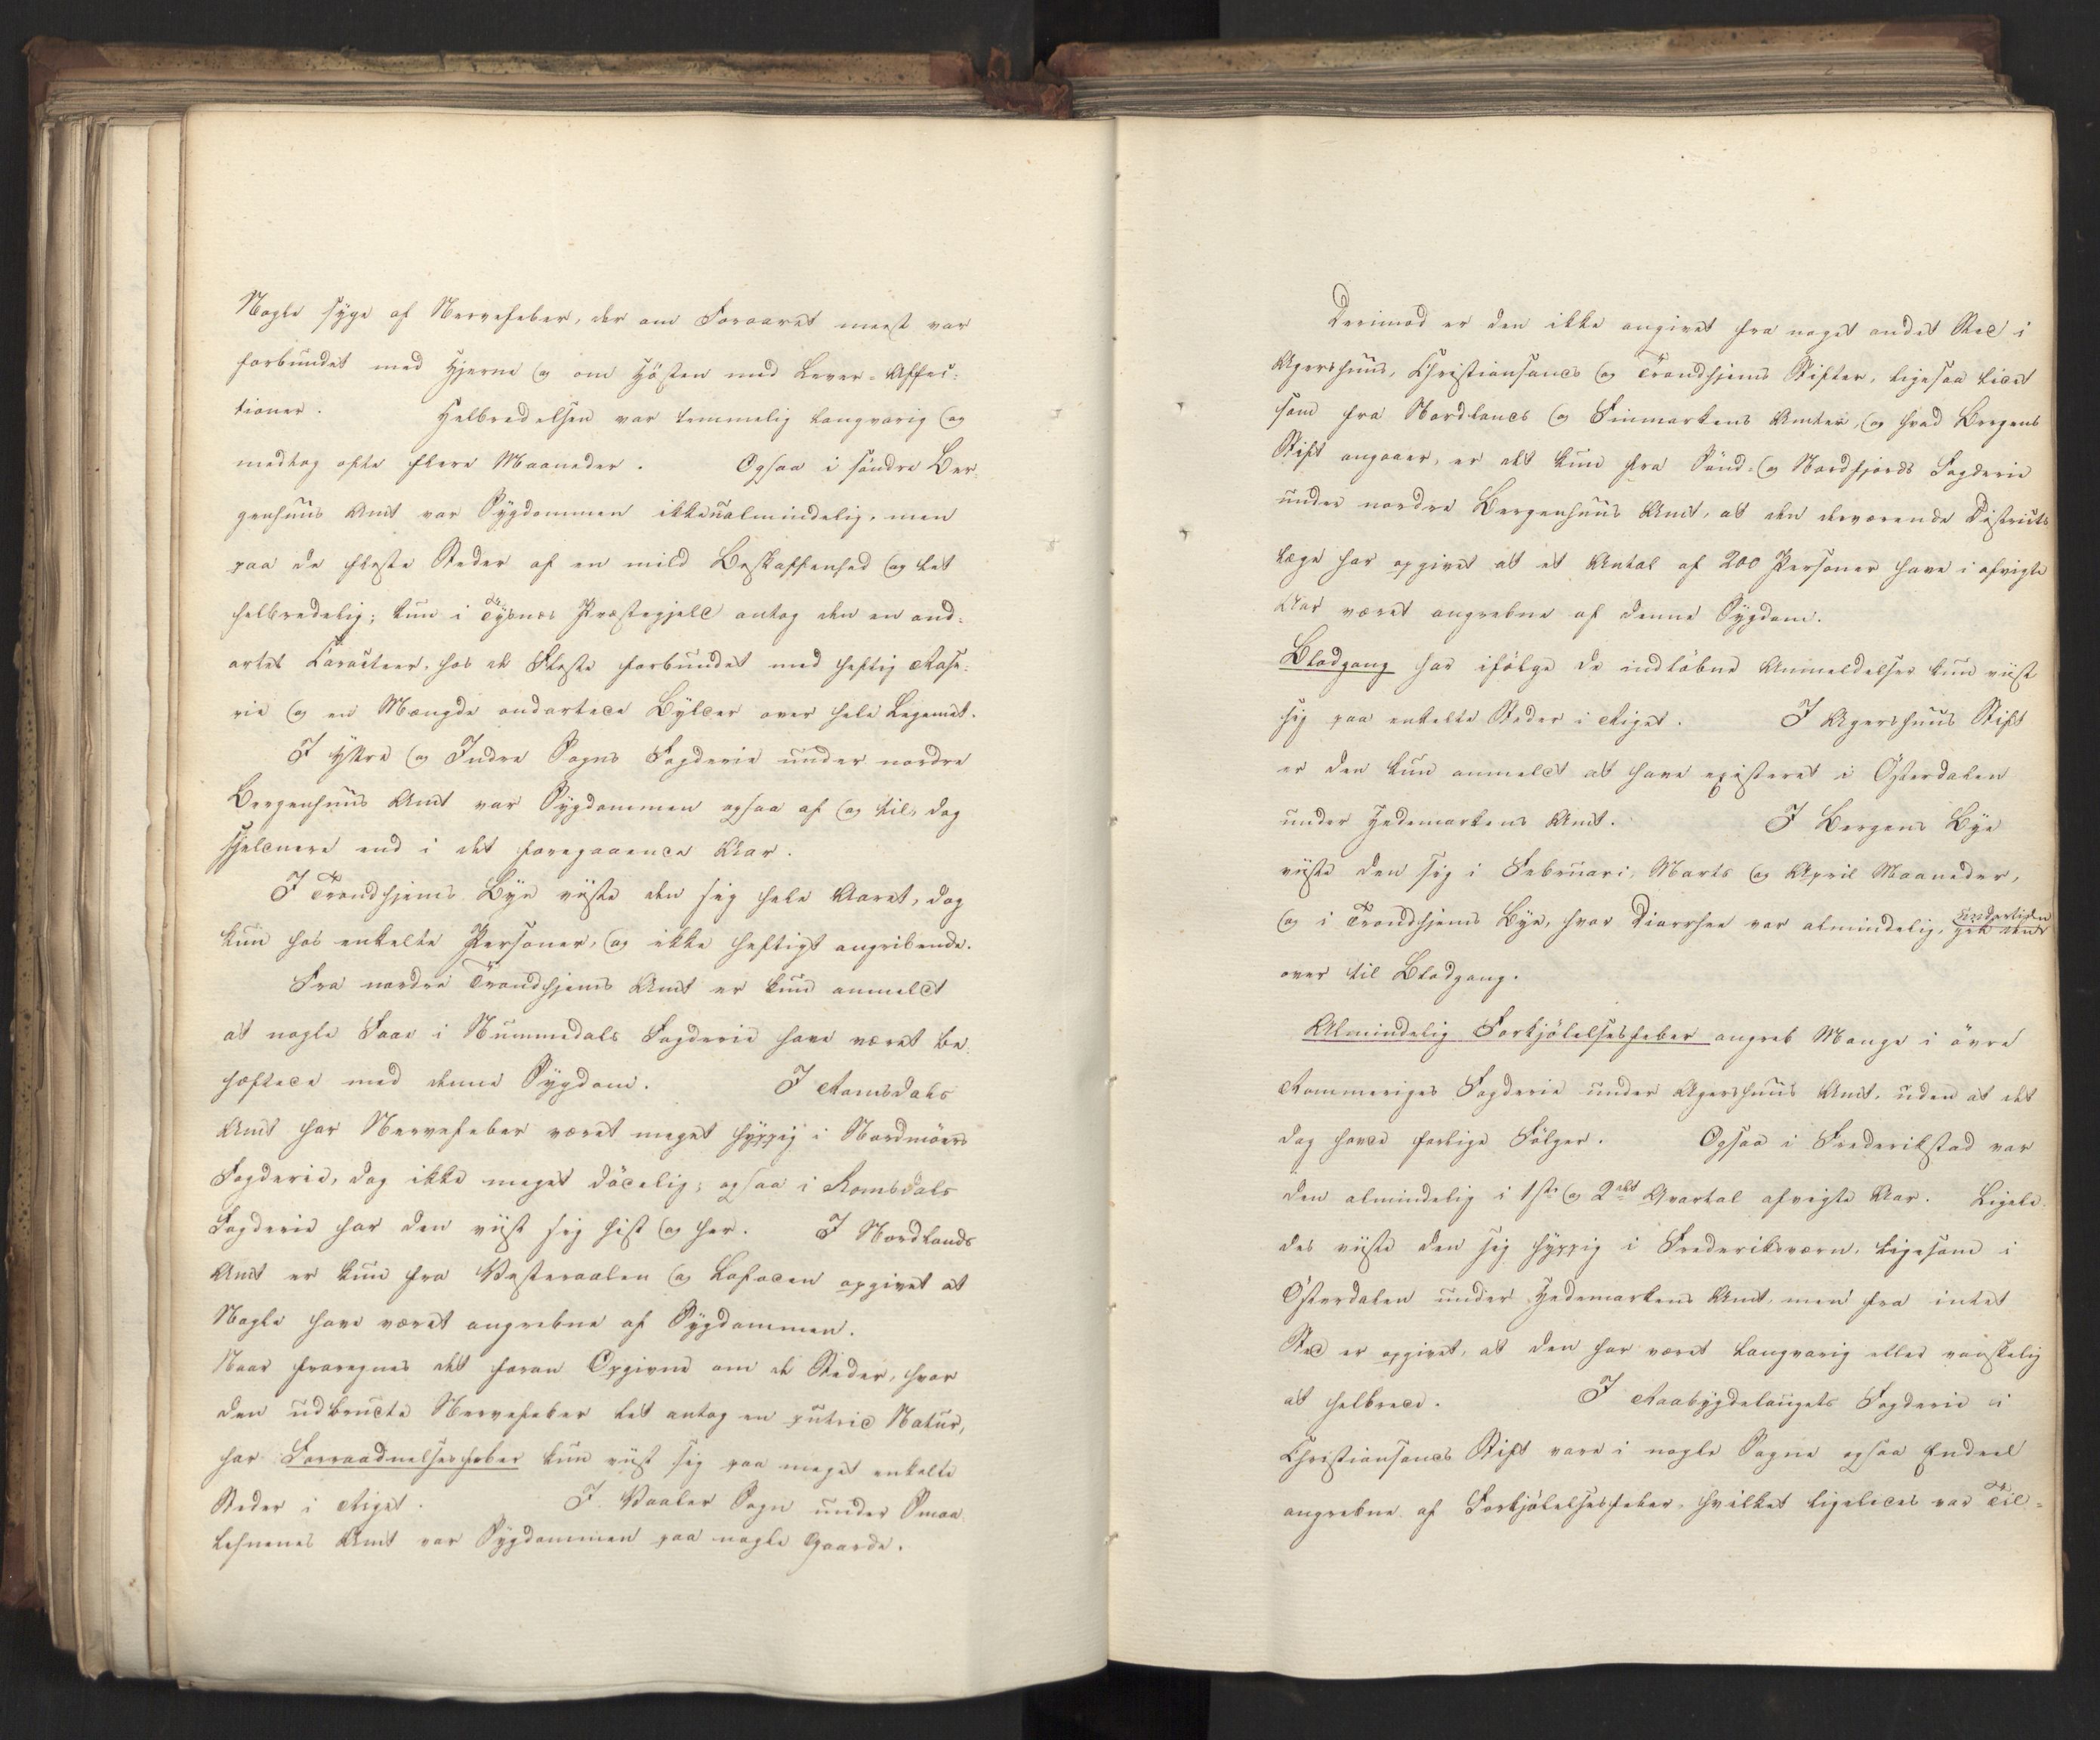 Nogle syge af Nervefeber, der om Foraaret meest var
forbundet med Hjerne og om Høsten med Lever-Affec-
tioner. Helbredelsen var temmelig langvarig og
medtog ofte flere Maaneder. Ogsaa i søndre Ber-
genhuus Amt var Sygdommen ikke ualmindelig, men
paa de fleste Steder af en mild Beskaffenhed og let
helbredelig; kun i Tysnes Præstegjeld antog den en ond-
artet Caracteer, hos de Fleste forbundet med heftig Rase-
rie og en Mængde ondartede Bylder over hele Legemet.
I Yttre og Indre Sogns Fogderie under nordre
Bergenhuus Amt var Sygdommen ogsaa af og til, dog
sjeldnere end i det foregaaende Aar.
I Trondhjems Bye viiste den sig hele Aaret, dog
kun hos enkelte Personer, og ikke heftigt angribende.
Fra nordre Trondhjems Amt er kun anmeldt
at nogle Faae i Nummedals Fogderie have været be-
hæftede med denne Sygdom. I Romsdals
Amt har Nervefeber været meget hyppig i Nordmøers
Fogderie, dog ikke meget dödelig; ogsaa i Romsdals
Fogderie har den viist sig hist og her. I Nordlands
Amt er kun fra Vesteraalen og Lofoden opgivet at
Nogle have været angrebne af Sygdommen.
Naar fraregnes det foran Opgivne om de Steder, hvor
den udbrudte Nervefeber let antog en putrid Natur,
har Forraadnelsesfeber kun viist sig paa meget enkelte
Steder i Riget. I Vaaler Sogn under Smaa-
lehnenes Amt var Sygdommen paa nogle Gaarde.
Derimod er den ikke angivet fra noget andet Sted i
Agershuus, Christiansands og Trondhjems Stifter, ligesaa lidet
som fra Nordlands og Finmarkens Amter, og hvad Bergens
Stift angaaer, er det kun fra Sönd- og Nordfjords Fogderie
under nordre Bergenhuus Amt, at den derværende Districts
læge har opgivet at et Antal af 200 Personer have i afvigte
Aar været angrebne af denne Sygdom.
Blodgang har ifölge de indløbne Anmeldelser kun viist
sig paa enkelte Steder i Riget. I Agershuus Stift
er den kun anmeldt at have existeret i Österdalen
under Hedemarkens Amt. I Bergens Bye
viiste den sig i Februari, Marts og April Maaneder,
og i Trondhjems Bye, hvor Diarrhee var almindelig, gik den
over til Blodgang.
Almindelig Forkjölelsesfeber angreb Mange i övre
Rommeriges Fogderie under Agershuus Amt, uden at det
dog havde farlige Fölger. Ogsaa i Frederikstad var
den almindelig i 1ste og 2det Qvartal afvigte Aar. Ligele-
des viiste den sig hyppig i Frederiksværn, ligesom i
Österdalen under Hedemarkens Amt, men fra intet
Sted er opgivet, at den har været langvarig eller vanskelig
at helbrede. I Raabygdelaugets Fogderie i
Christiansands Stift vare i nogle Sogne ogsaa Endeel
angrebne af Forkjölelsesfeber, hvilket ligeledes var Til-